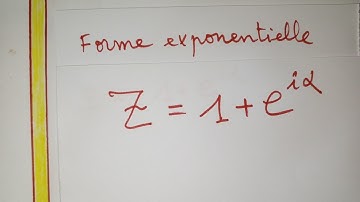 Forme exponentielle
Z = 1 + e^{iα}